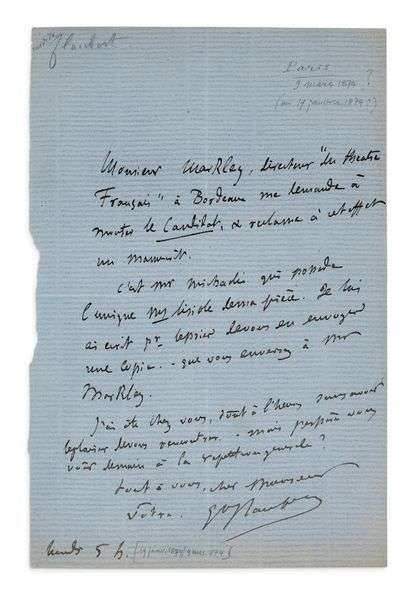 Flaubert
Paris
9 mars 1874 ?
(ou 19 janvier 1874 ?)
Monsieur MarKley, directeur "du theatre
Français" à Bordeaux me demande à
monter le Candidat, & reclame à cet effet
un manuscrit.
C'est mr michaelis qui possède
l'unique ms lisible de ma pièce. Je lui
ai ecrit pr le prier de vous en envoyer
une copie. - que vous enverrez à Mr
MarKley.
J'ai été chez vous, tout à l'heure sans avoir
le plaisir de vous rencontrer. - mais j'espère vous
voir demain à la repetition generale ?
tout à vous, cher Monsieur
Votre. Gve Flaubert
lundi 5 h.